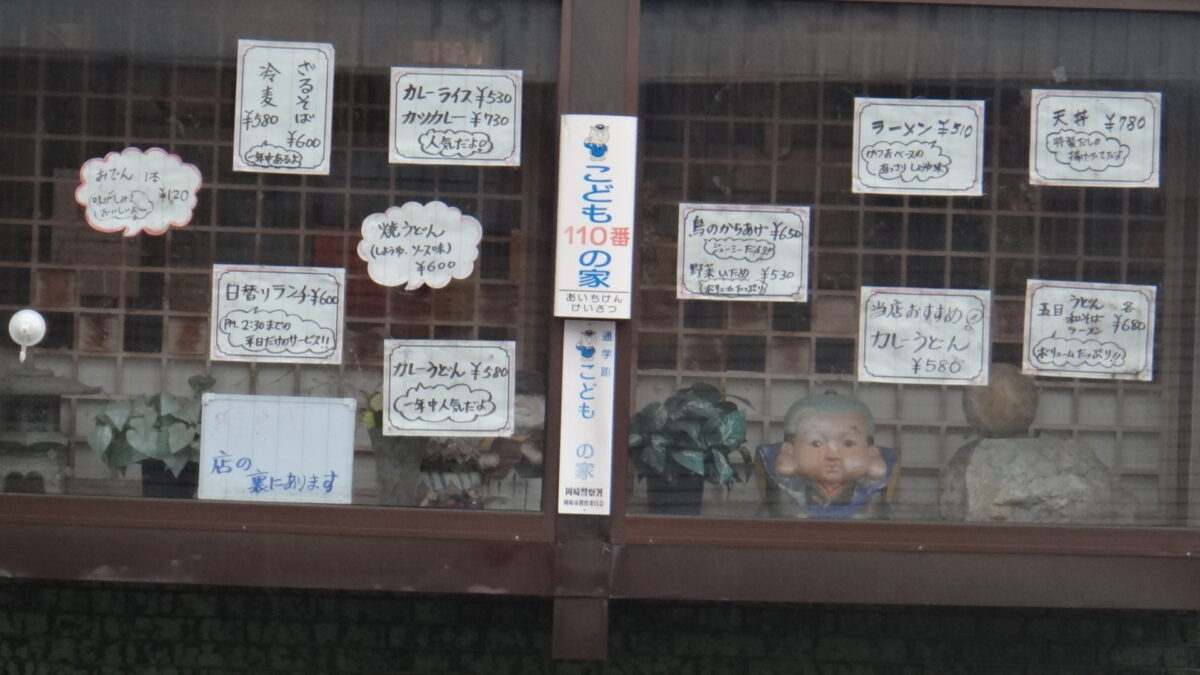 ざるそば
¥600
冷麦
¥580
一年中あるよ
カレーライス ¥530
カツカレー ¥730
人気だよ!
おでん 1本
¥120
味がしみて
おいしいよ
焼うどん
(しょうゆ、ソース味)
¥600
日替りランチ ¥600
PM.2:30までの
平日だけのサービス!!
カレーうどん ¥580
一年中人気だよ
店の
裏にあります
こども
110番
の家
あいちけん
けいさつ
通学路
こども
の家
岡崎警察署
岡崎市教育委員会
鳥のからあげ ¥650
ジューシーだよ!!
野菜いため ¥530
ボリュームたっぷり
ラーメン ¥510
かつおベースの
あっさりしょうゆ味
天丼 ¥780
特製だしの
揚げたてだよ
当店おすすめ
カレーうどん
¥580
五目 うどん 和そば ラーメン 各¥680
ボリュームたっぷり!!